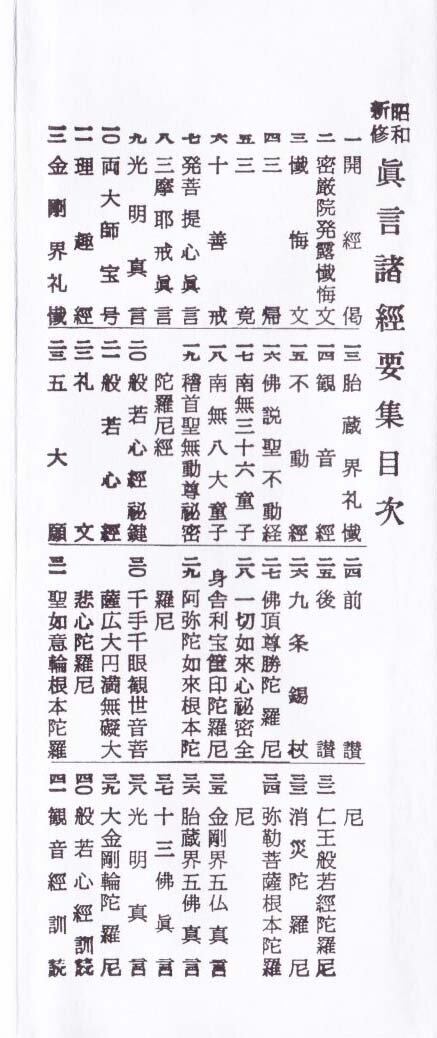 昭和新修
眞言諸經要集目次
一 開經偈
二 密厳院発露懺悔文
三 懺悔文
四 三帰
五 三竟
六 十善戒
七 発菩提心眞言
八 三摩耶戒眞言
九 光明真言
一〇 両大師宝号
一一 理趣經
一二 金剛界礼懺
一三 胎蔵界礼懺
一四 観音經
一五 不動經
一六 佛説聖不動経
一七 南無三十六童子
一八 南無八大童子
一九 稽首聖無動尊秘密
陀羅尼經
二〇 般若心經秘鍵
二一 般若心經
二二 礼文
二三 五大願
二四 前讃
二五 後讃
二六 九条錫杖
二七 佛頂尊勝陀羅尼
二八 一切如來心祕密全
身舎利宝篋印陀羅尼
二九 阿弥陀如來根本陀
羅尼
三〇 千手千眼観世音菩
薩広大円満無礙大
悲心陀羅尼
三一 聖如意輪根本陀羅
尼
三二 仁王般若經陀羅尼
三三 消災陀羅尼
三四 弥勒菩薩根本陀羅
尼
三五 金剛界五仏真言
三六 胎蔵界五佛真言
三七 十三佛眞言
三八 光明真言
三九 大金剛輪陀羅尼
四〇 般若心經訓読
四一 観音經訓読